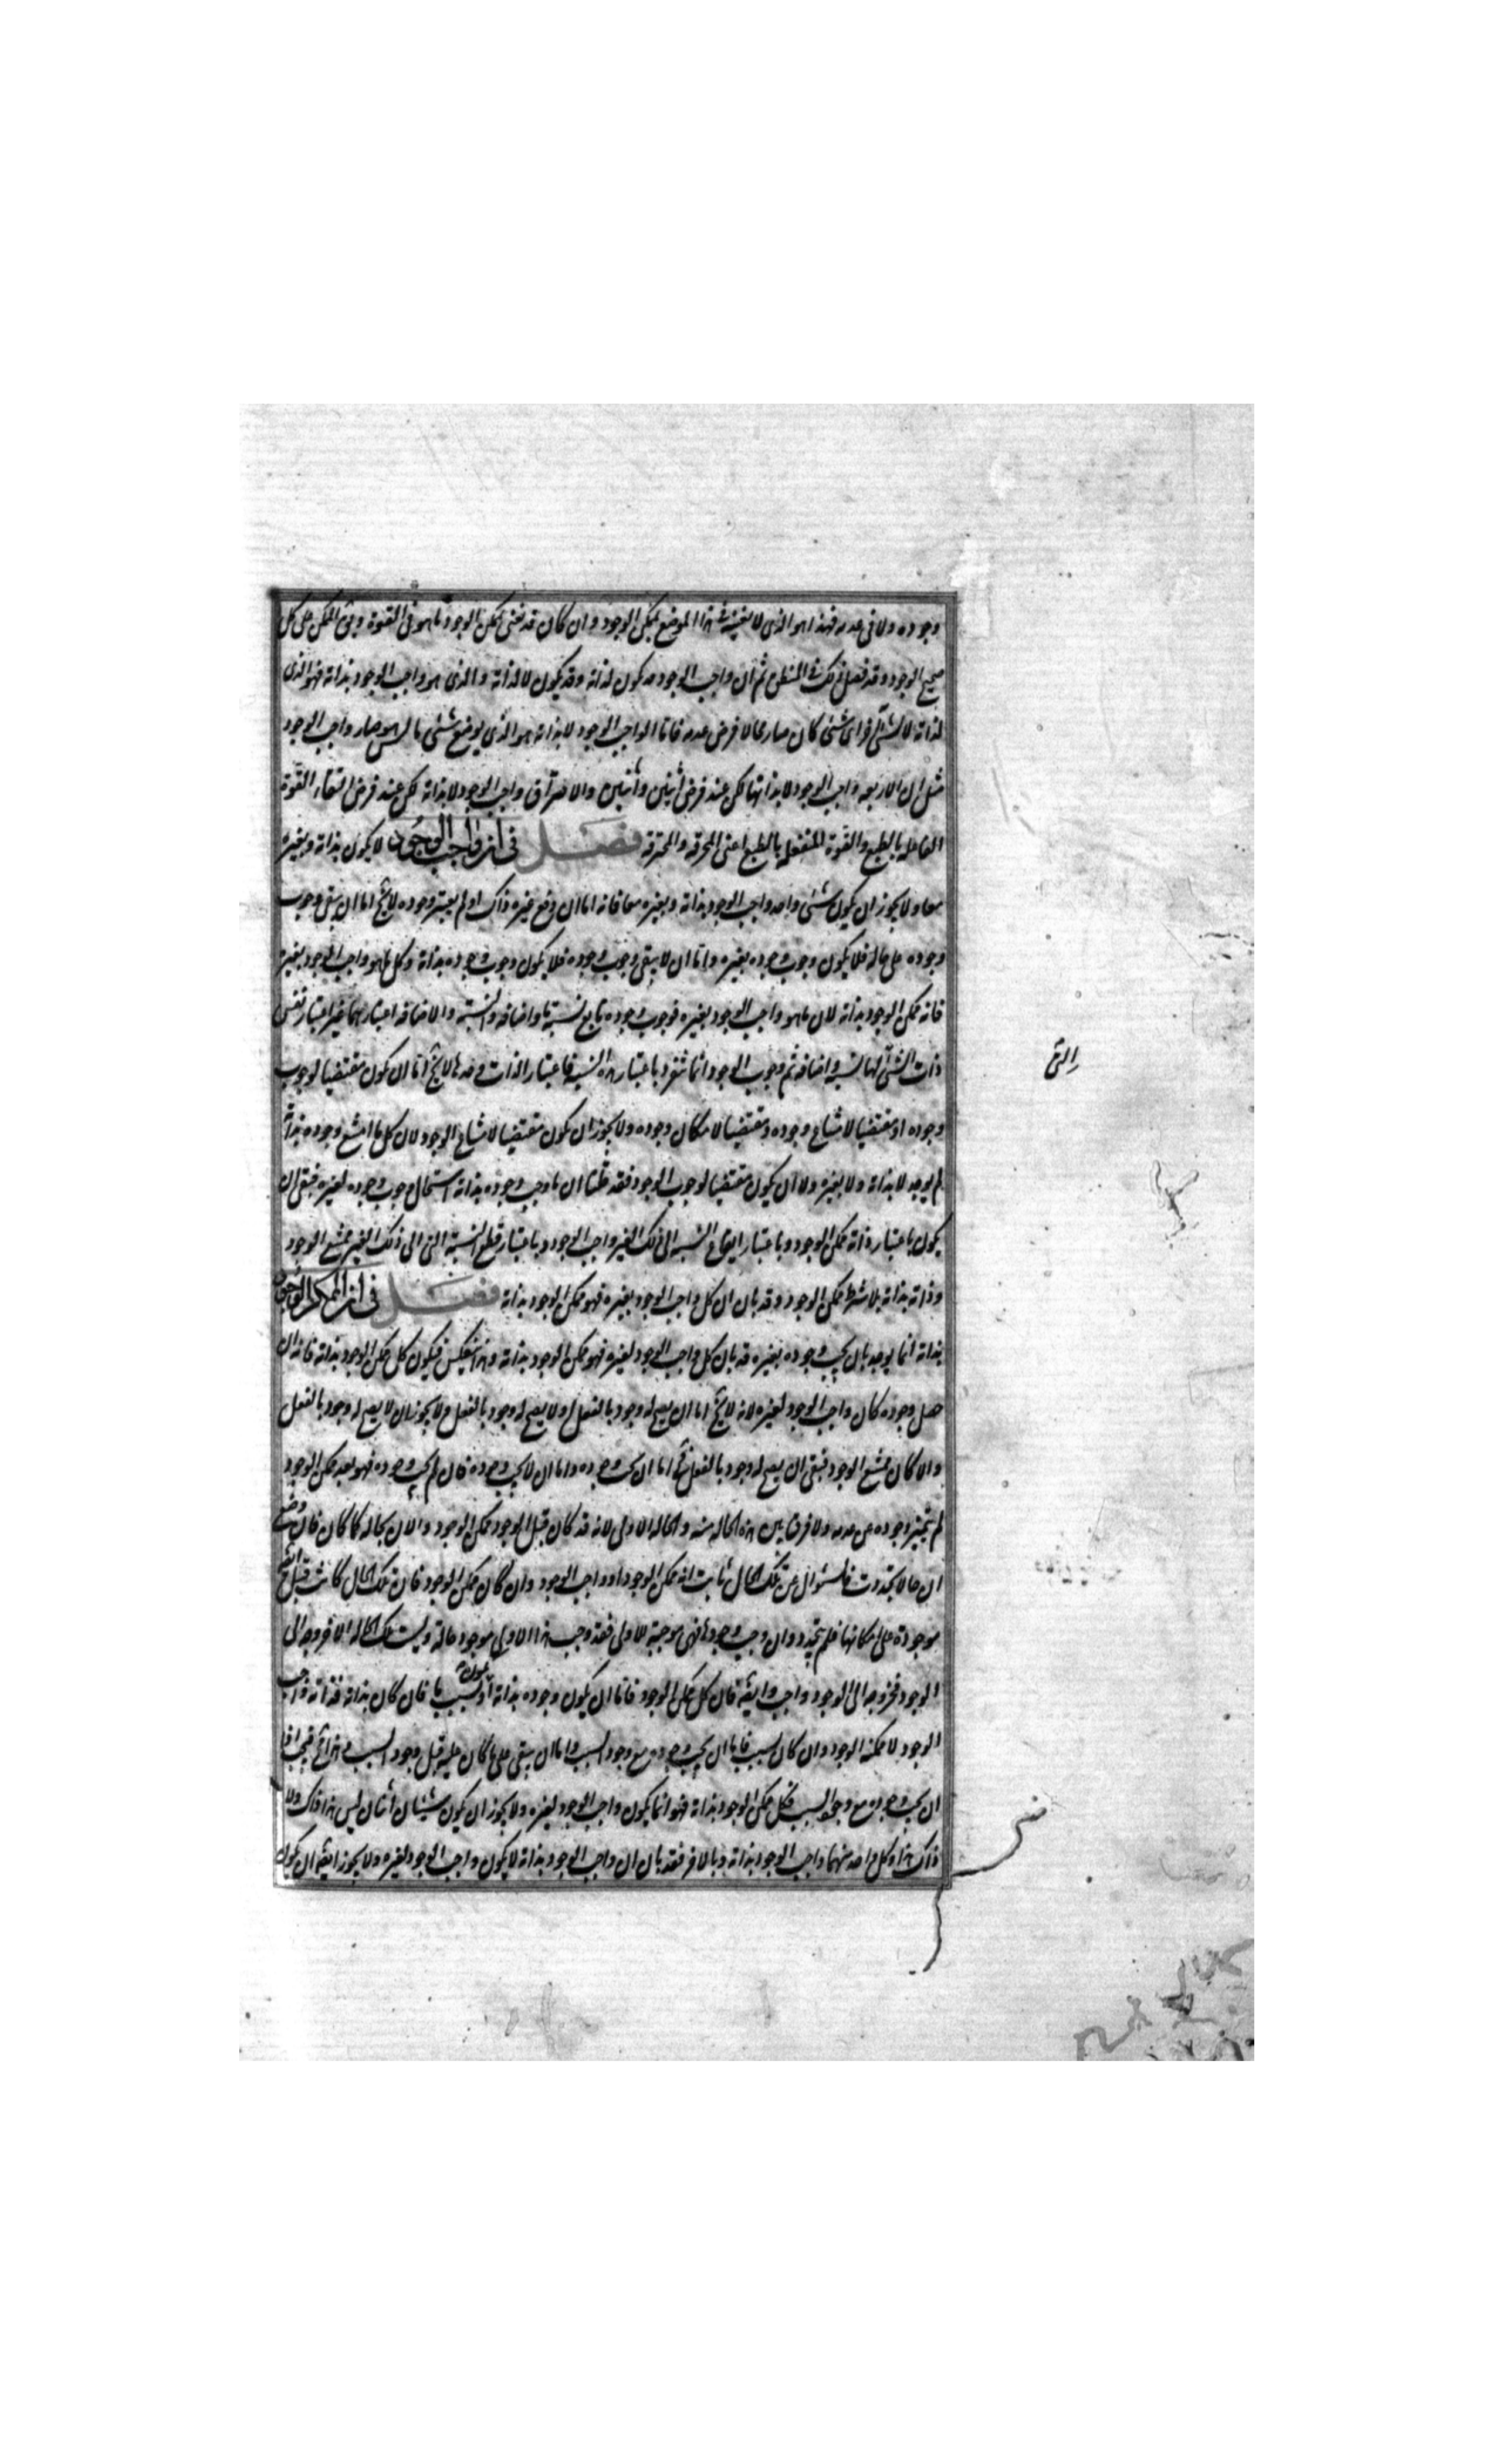 وجوده ولا فى عدمه فهذا هو الذى لا نعنيه فى هذا الموضع بممكن الوجود وان كان قد نعنى بممكن الوجود ما هو فى القوة ويق الممكن على كل
صحيح الوجود وقد فصل ذلك فى المنطق ثم ان واجب الوجود قد يكون لذاته وقد يكون لا لذاته والذى هو واجب الوجود بذاته فهو الذى
لذاته لا لشئ آخر اى شئ كان صار محالا فرض عدمه فاما الواجب الوجود لا بذاته هو الذى يوضع شئ ما ليس هو صار واجب الوجود
مثل ان الاربعه واجب الوجود لا بذاتها لكن عند فرض اثنين واثنين والاحتراق واجب الوجود لا بذاته لكن عند فرض التقاء القوة
الفاعله بالطبع والقوة المنفعله بالطبع اعنى المحرقه والمحترقه فصل فى ان واجب الوجود لا يكون بذاته وبغيره
معا ولا يجوز ان يكون شئ واحد واجب الوجود بذاته وبغيره معا فانه اما ان رفع غيره ذاك او لم يعتبر وجوده لا يخ اما ان يبقى وجوب
وجوده على حاله فلا يكون وجوب وجوده بغيره واما ان لا يبقى وجوب وجوده فلا يكون وجوب وجوده بذاته وكل ما هو واجب الوجود بغيره
فانه ممكن الوجود بذاته لان ما هو واجب الوجود بغيره فوجوب وجوده تابع لنسبة ما واضافه والنسبة والاضافه اعتبارهما غير اعتبار نفس
ذات الشئ التى لها نسبه واضافه ثم وجوب الوجود انما تتقرر باعتبار هذه النسبه فاعتبار الذات وحدها لا يخ اما ان يكون مقتضيا لوجوب
وجوده او مقتضيا لامتناع وجوده ومقتضيا لامكان وجوده ولا يجوز ان يكون مقتضيا لامتناع الوجود لان كل ما امتنع وجوده بذاته
لم يوجد لا بذاته ولا بغيره ولا ان يكون مقتضيا لوجوب الوجود فقد قلنا ان ما وجب وجوده بذاته استحال وجوب وجوده لغيره فبقى ان
يكون باعتبار ذاته ممكن الوجود وباعتبار ايقاع النسبه الى ذلك الغير واجب الوجود وباعتبار قطع النسبة التى الى ذلك الغير ممتنع الوجود
وذاته بذاته بلا شرط ممكن الوجود وقد بان ان كل واجب الوجود بغيره فهو ممكن الوجود بذاته فصل فى ان الممكن الوجود
بذاته انما يوجد بان يجب وجوده بغيره قد بان كل واجب الوجود لغيره فهو ممكن الوجود بذاته وهذا ينعكس فيكون كل ممكن الوجود بذاته فانه ان
حصل وجوده كان واجب الوجود لغيره لانه لا يخ اما ان يصح له وجود بالفعل او لا يصح له وجود بالفعل ولا يجوز ان لا يصح له وجود بالفعل
والا كان ممتنع الوجود فبقى ان يصح له وجود بالفعل فح اما ان يجب وجوده واما ان لا يجب وجوده فان لم يجب وجوده فهو بعد ممكن الوجود
لم يتميز وجوده عن عدمه ولا فرق بين هذه الحاله منه والحاله الاولى لانه قد كان قبل الوجود ممكن الوجود والان بحاله كما كان فان وضع
ان حالا تجددت فالسئوال عن تلك الحال ثابت انه ممكن الوجود او واجب الوجود وان كان ممكن الوجود فان تلك الحال كانت قبل ايضا
موجودة على امكانها فلم يتجدد وان وجب وجودها فهى موجبة للاولى فقد وجب لهذا الاول موجود حاله وليست تلك الحاله الا خروجه الى
الوجود فخروجه الى الوجود واجب وايضه فان كل ممكن الوجود فاما ان يكون وجوده بذاته او يكون لسبب ما فان كان بذاته فذاته واجب
الوجود لا ممكنه الوجود وان كان لسبب فاما ان يجب وجوده مع وجود السبب واما ان يبقى على ما كان عليه قبل وجود السبب وهذا مح فيجب اذا
ان يجب وجوده مع وجود السبب فكل ممكن الوجود بذاته فهو انما يكون واجب الوجود لغيره ولا يجوز ان يكون شيئان اثنان ليس هذا ذاك ولا
ذاك هذا وكل واحد منهما واجب الوجود بذاته وبالاخر فقد بان ان واجب الوجود بذاته لا يكون واجب الوجود لغيره ولا يجوز ايضه ان يكون
التى